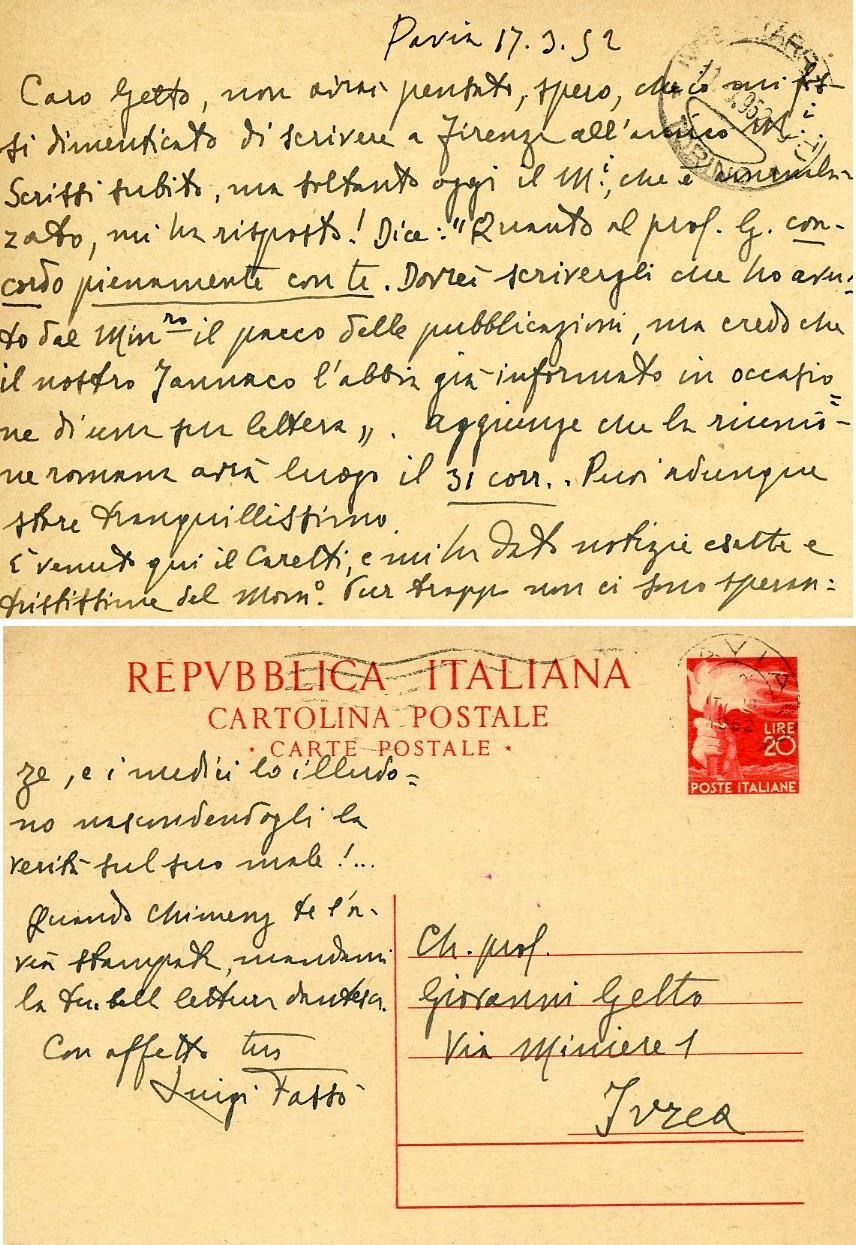 Pavia 17.3.52
Caro Getto, non avrai pensato, spero, che io mi fos-
si dimenticato di scrivere a Firenze all'amico M.i
Scrissi subito, ma soltanto oggi il M.i, che è
zato, mi ha risposto! Dice: "Quanto al prof. G. con-
cordo pienamente con te. Dovrei scrivergli che ho avu-
to dal Min.ro il pacco delle pubblicazioni, ma credo che
il nostro Jannaco l'abbia già informato in occasio=
ne di una sua lettera„. Aggiunge che la riunio=
ne romana avrà luogo il 31 corr.. Puoi adunque
stare tranquillissimo.
È venuto qui il Caretti, e mi ha dato notizie esatte e
tristissime del Mom.o. Pur troppo non ci sono speran=
REPVBBLICA ITALIANA
CARTOLINA POSTALE
· CARTE POSTALE ·
PAVIA
1952
LIRE
20
POSTE ITALIANE
ze, e i medici lo illudo=
no nascondendogli la
verità sul suo male!...
Quando Chimenz te l'a-
vrà stampata, mandami
la tua bella lettura dantesca.
Con affetto tuo
Luigi Fassò
Ch. prof.
Giovanni Getto
Via Miniere 1
Ivrea
TORINO